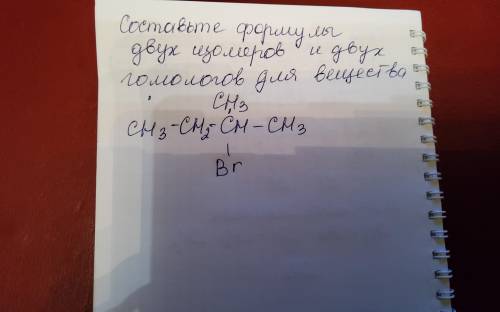 Составьте формулы
двух изомеров и двух
гомологов для вещества
CH3
CH3-CH2-CH-CH3
Br